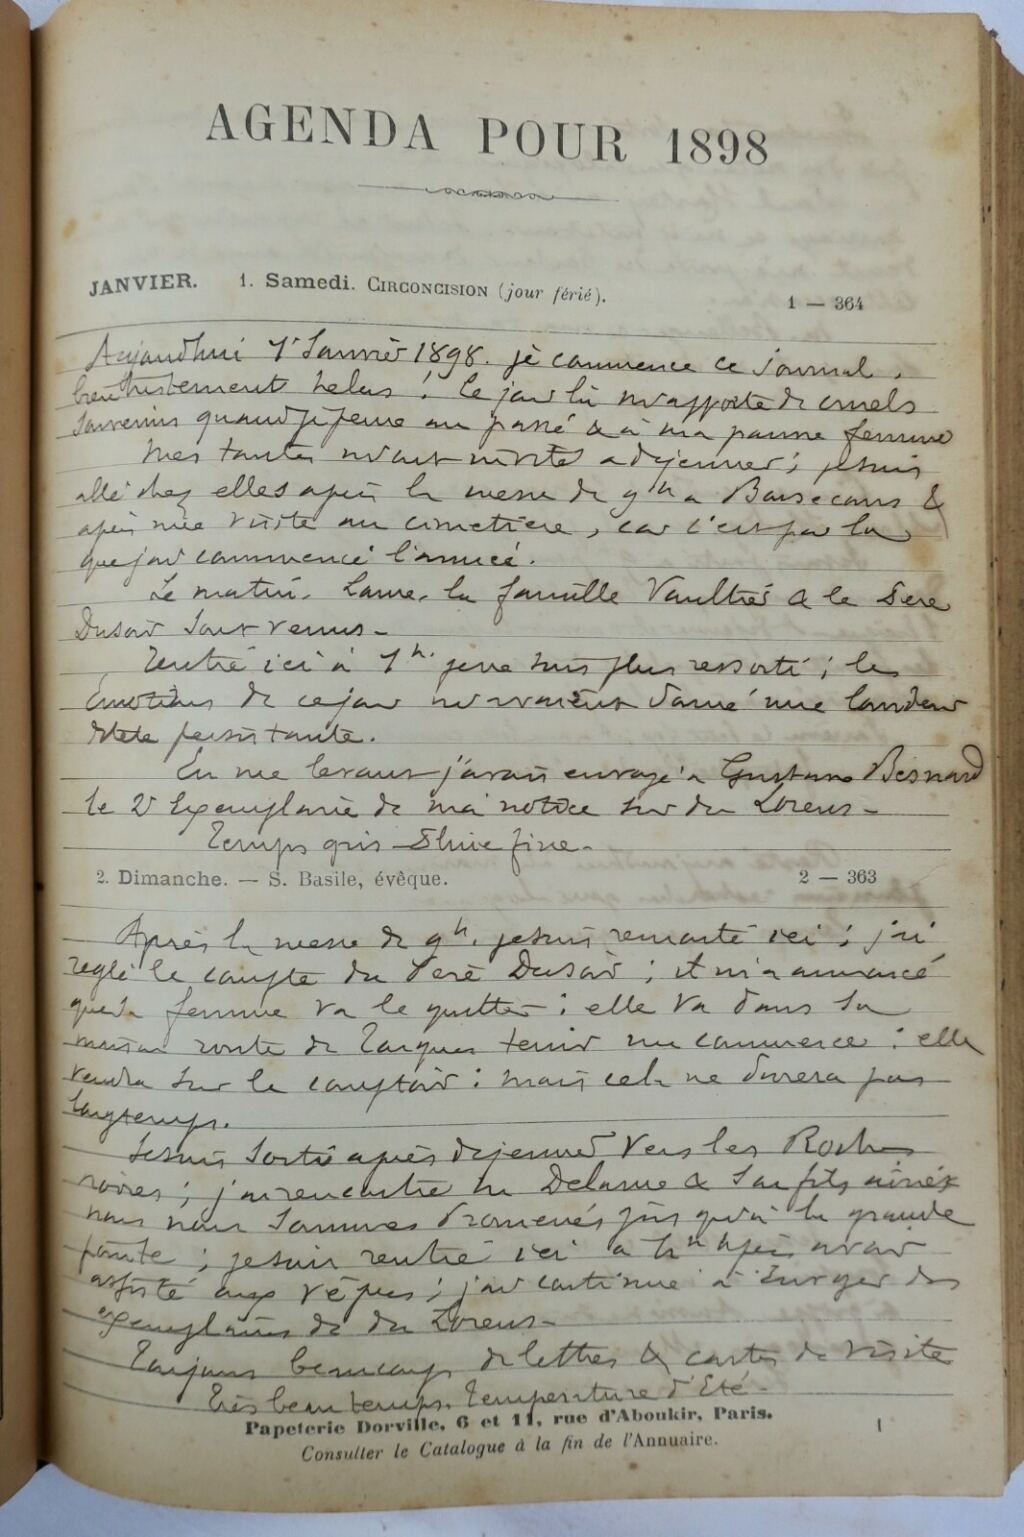 AGENDA POUR 1898
JANVIER. 1. Samedi. CIRCONCISION (jour férié). 1 — 364
Aujourdhui 1r Janvier 1898. je commence ce journal,
bien tristement helas ! Ce jour là m'apporte de cruels
souvenirs quand je pense au passé & à ma pauvre femme
Mes tantes m'ont invité a déjeuner ; je suis
allé chez elles après la messe de 9h a &
après une visite au cimetière, car c'est par là
que j'ai commencé l'année.
Le matin. la famille Vaultier & le Père
Dusoir sont venus —
Rentré ici à 1h. je ne suis plus ressorti ; les
émotions de ce jour m'avaient donné une lourdeur
de tete persistante.
En me levant j'avais envoyé a Gustave Besnard
le 2e Exemplaire de ma notice sur du Lorens —
Temps gris Pluie fine —
2. Dimanche. — S. Basile, évêque. 2 — 363
Après la messe de 9h. je suis remonté ici ; j'ai
reglé le compte du Père Dusoir ; il m'a annoncé
que sa femme va le quitter : elle va dans sa
maison route de tenir un commerce : elle
vendra sur le comptoir : mais cela ne durera pas
longtemps.
Je suis sorti après déjeuner vers les Roches
noires ; j'ai rencontré Mr Delarue & son fils ainé
nous nous sommes promenés jusqu'à la grande
pointe ; je suis rentré ici a après avoir
assisté aux vêpres ; j'ai continué à envoyer des
exemplaires de du Lorens —
Toujours beaucoup de lettres & cartes de visite
Très beau temps. Température d'Eté —
Papeterie Dorville, 6 et 11, rue d'Aboukir, Paris. 1
Consulter le Catalogue à la fin de l'Annuaire.